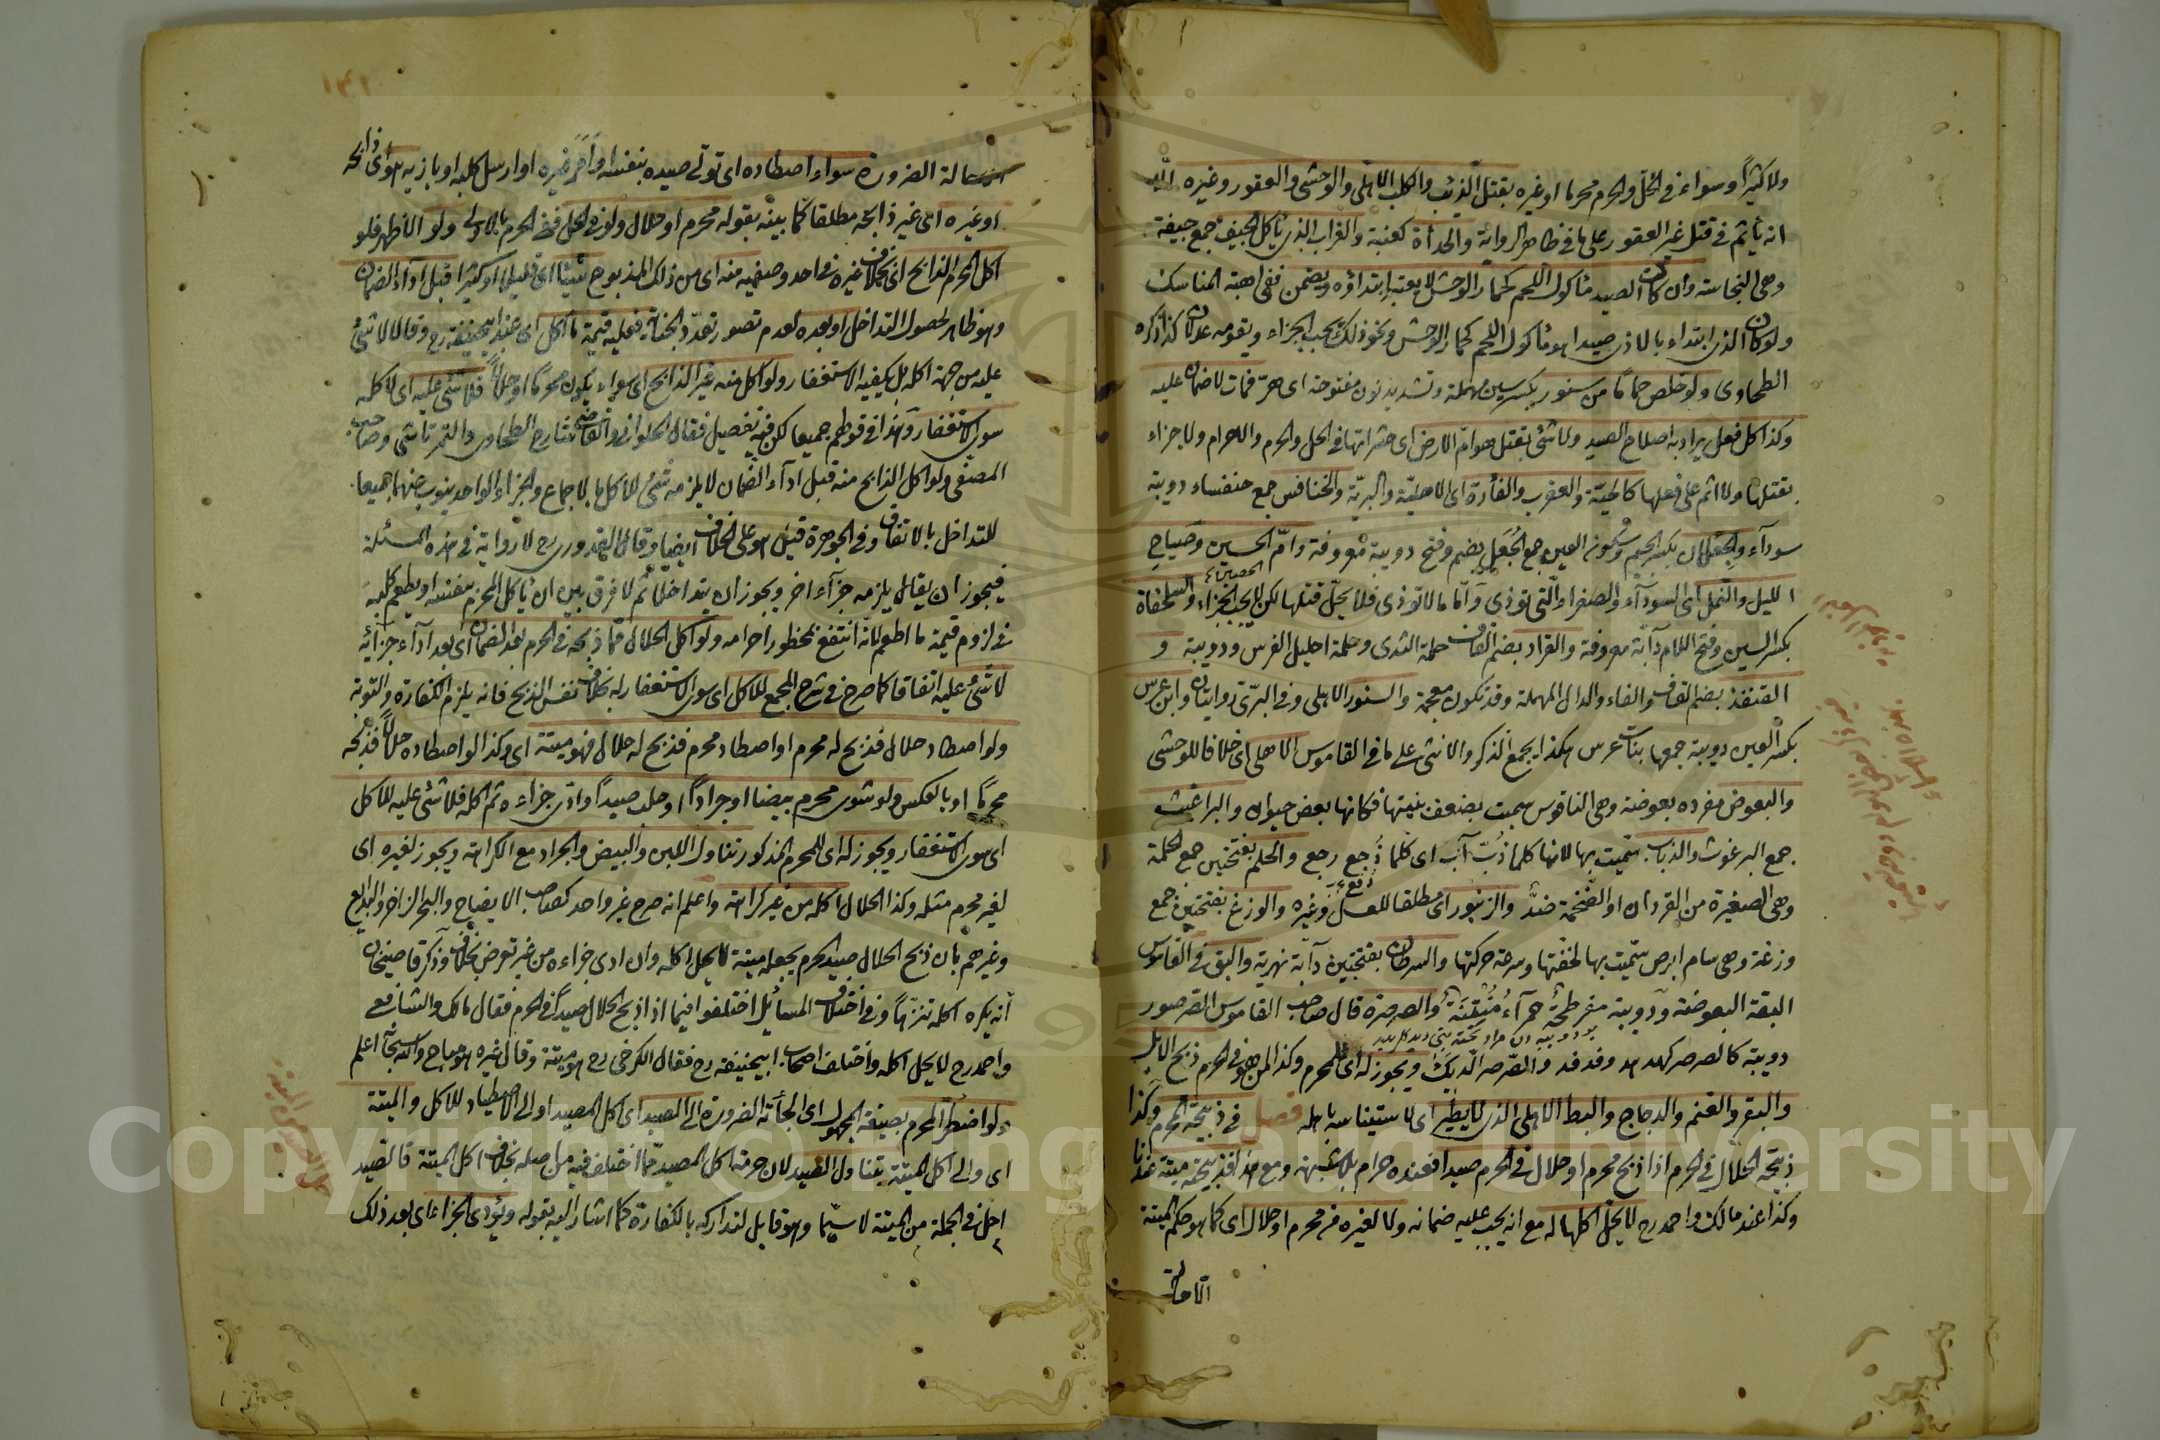 ولا كثيرًا وسواء في الحل والحرم محرما او غيره بقتل الذئب والكلب الاهلي والوحشي والعقور وغيره الا
انه يأثم في قتل غير العقور على ما في ظاهر الرواية والحدأة كعنبة والغراب الذي ياكل الجيف جمع جيفة
وهي النجاسة وان كان الصيد مأكول اللحم كحمار الوحش لا يعتبر ابتداؤه ويضمن ففي اهبة المناسك
ولو كان الذي ابتداء بالاذى صيدا هو مأكول اللحم كحمار الوحش ونحو ذلك يجب الجزاء ويقومه عدلان كذا ذكره
الطحاوي ولو خلص حماما من سنور بكسر سين مهملة وتشديد نون مفتوحة اي هر فمات لا ضمان عليه
وكذا كل فعل يراد به اصلاح الصيد ولا شئ بقتل هوام الارض اي حشراتها في الحل والحرم والاحرام ولا جزاء
بقتلها ولا اثم على فعلها كالحية والعقرب والفأرة اي الاهلية والبرية والخنافس جمع خنفساء دويبة
سوداء والجعلان بكسر الجيم وسكون العين جمع الجعل بضم وفتح دويبة معروفة وام الحبين وصياح
الليل والنمل اي السوداء والصفراء التي توذي واما ما لا توذي فلا يحل قتلها لكن لا يجب الجزاء والسلحفاة
بكسر السين وفتح اللام دابة معروفة والقراد بضم القاف حلمة الثدي وحلمة احليل الفرس ودويبة و
القنفذ بضم القاف والفاء والدال المهملة وقد تكون معجمة والسنور الاهلي وفي البري روايتان وابن عرس
بكسر العين دويبة جمعها بنات عرس هكذا يجمع الذكر والانثى على ما في القاموس الاهلي اي خلافا للوحشي
والبعوض مفرده بعوضة وهي الناقوس سميت بضعف بنيتها فكانها بعض حيوان والبراغيث
جمع البرغوث والذباب سميت بها لانها كلما ذب آب اي كلما دفع رجع والحلم بفتحتين جمع الحلمة
وهي الصغيرة من القردان او الضخمة ضد والزنبور اي مطلقا للعسل وغيره والوزغ بفتحتين جمع
وزغة وهي سام ابرص سميت بها لخفتها وسرعة حركتها والسرطان بفتحتين دابة نهرية والبق في القاموس
البقة البعوضة ودويبة مفرطحة حمراء منتنة والصرصرة قال صاحب القاموس الصرصور
دويبة كالصرصر كهدهد وفدفد والصرصر الديك ويجوز له اي للمحرم وكذا لمن هو في الحرم ذبح الابل
والبقر والغنم والدجاج والبط الاهلي الذي لا يطير اي لاستيناسه باهله فصل في ذبيحة المحرم وكذا
ذبيحة الحلال في الحرم اذا ذبح محرم او حلال في الحرم صيدا فعنده حرام بلا شبهة ومع هذا فذبيحته ميتة عندنا
وكذا عند مالك واحمد رح لا يحل اكلها له مع انه يجب عليه ضمانه ولا لغيره من محرم او حلال اي كما هو حكم الميتة
الا حالة
١٤١
حالة الضرورة سواء اصطاده اي تولى صيده بنفسه او امر غيره او ارسل كلبه او بازيه سواء اي ذابحه
او غيره اي غير ذابحه مطلقا كما بينه بقوله محرم او حلال ولو في الحل ففي الحرم بالاولى ولو الاظهر فلو
اكل المحرم الذابح اي بخلاف غيره في احد وصفيه منه اي من ذلك المذبوح شيئا اي قليلا او كثيرا قبل اداء الضمان
وهو ظاهر لحصول التداخل او بعده لعدم تصور تعدد الجناية فعليه قيمة ما اكل اي عند ابيحنيفة رح وقالا لا شئ
عليه من جهة اكله بل يكفيه الاستغفار ولو اكل منه غير الذابح اي سواء يكون محرما او حلالا فلا شئ عليه اي لاكله
سوى الاستغفار وهذا في قولهم جميعا لكن فيه تفصيل فقال الحلواني والقاضي شارح الطحاوي والتمرتاشي وصاحب
المصفى ولو اكل الذابح منه قبل اداء الضمان لا يلزمه شئ للاكل بالاجماع والجزاء الواحد ينوب عنهما جميعا
للتداخل بالاتفاق وفي الجوهرة قيل هو على الخلاف ايضا وقال القدوري رح لا رواية في هذه المسئلة
فيجوز ان يقال يلزمه جزاء اخر ويجوز ان يتداخلا ثم لا فرق بين ان ياكل المحرم بنفسه او يطعم كلبه
في لزوم قيمة ما اطعم لانه انتفع بمحظور احرامه ولو اكل الحلال مما ذبحه في الحرم بعد الضمان اي بعد اداء جزائه
لا شئ عليه اتفاقا كما صرح في شرح المجمع للاكل اي سوى الاستغفار له بخلاف نفس الذبح فانه يلزم الكفارة والتوبة
ولو اصطاد حلال فذبح له محرم او اصطاد محرم فذبح له حلال فهو ميتة اي وكذا لو اصطاده حلالا فذبحه
محرما او بالعكس ولو شوى محرم بيضا او جرادا او حلب صيدا وادى جزاءه ثم اكله فلا شئ عليه للاكل
اي سوى الاستغفار ويجوز له اي للمحرم المذكور تناول اللبن والبيض والجراد مع الكراهة ويجوز لغيره اي
لغير محرم مثله وكذا الحلال اكله من غير كراهة واعلم انه صرح غير واحد كصاحب الايضاح والبحر الزاخر والبدايع
وغيرهم بان ذبح الحلال صيد الحرم يجعله ميتة لا يحل اكله وان ادى جزاءه من غير تعرض بخلاف وذكر قاضيخان
انه يكره اكله تنزها وفي اختلاف المسائل اختلفوا فيما اذا ذبح الحلال صيدا في الحرم فقال مالك والشافعي
واحمد رح لا يحل اكله واختلف اصحاب ابيحنيفة رح فقال الكرخي رح هو ميتة وقال غيره هو مباح والله سبحانه اعلم
ولو اضطر المحرم بصيغة المجهول اي الجأته الضرورة الى الصيد اي اكل الصيد او الى الاصطياد للاكل والميتة
اي والى اكل الميتة يتناول الصيد لان حرمة اكل الصيد مما اختلف فيه من اصله بخلاف اكل الميتة فالصيد
احل في الجملة من الميتة لا سيما وهو قابل لتداركه بالكفارة كما اشار اليه بقوله ويؤدي الجزاء اي بعد ذلك
Copyright © King Saud University